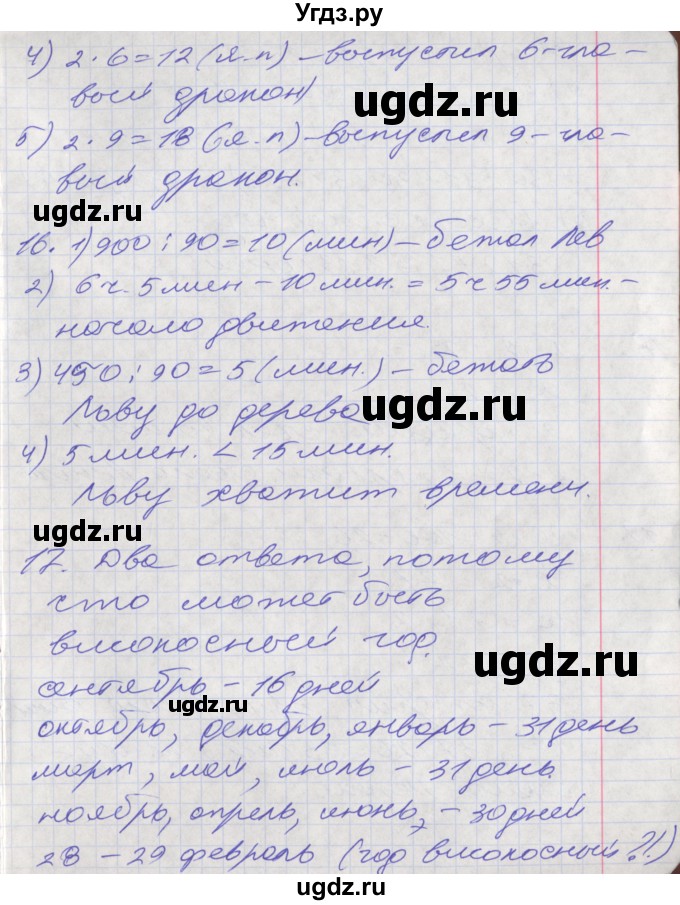 Угдз.ру
4) 2 · 6 = 12 (я. п) – выпустил 6-гла-
вый дракон)
ugdz.ru
5) 2 · 9 = 18 (я. п) – выпустил 9-гла-
вый дракон.
ugdz.ru
16. 1) 900 : 90 = 10 (мин) – бежал Лев
2) 6 ч. 5 мин – 10 мин. = 5 ч 55 мин. –
начало движения.
3) 450 : 90 = 5 (мин.) – бежать
Льву до дерева
ugdz.ru
4) 5 мин. < 15 мин.
Льву хватит времени.
ugdz.ru
17. Два ответа, потому
что может быть
високосный год.
ugdz.ru
сентябрь – 16 дней
ugdz.ru
октябрь, декабрь, январь – 31 день
март, май, июль – 31 день
ноябрь, апрель, июнь, – 30 дней
28 – 29 февраль (год високосный?!)
ugdz.ru